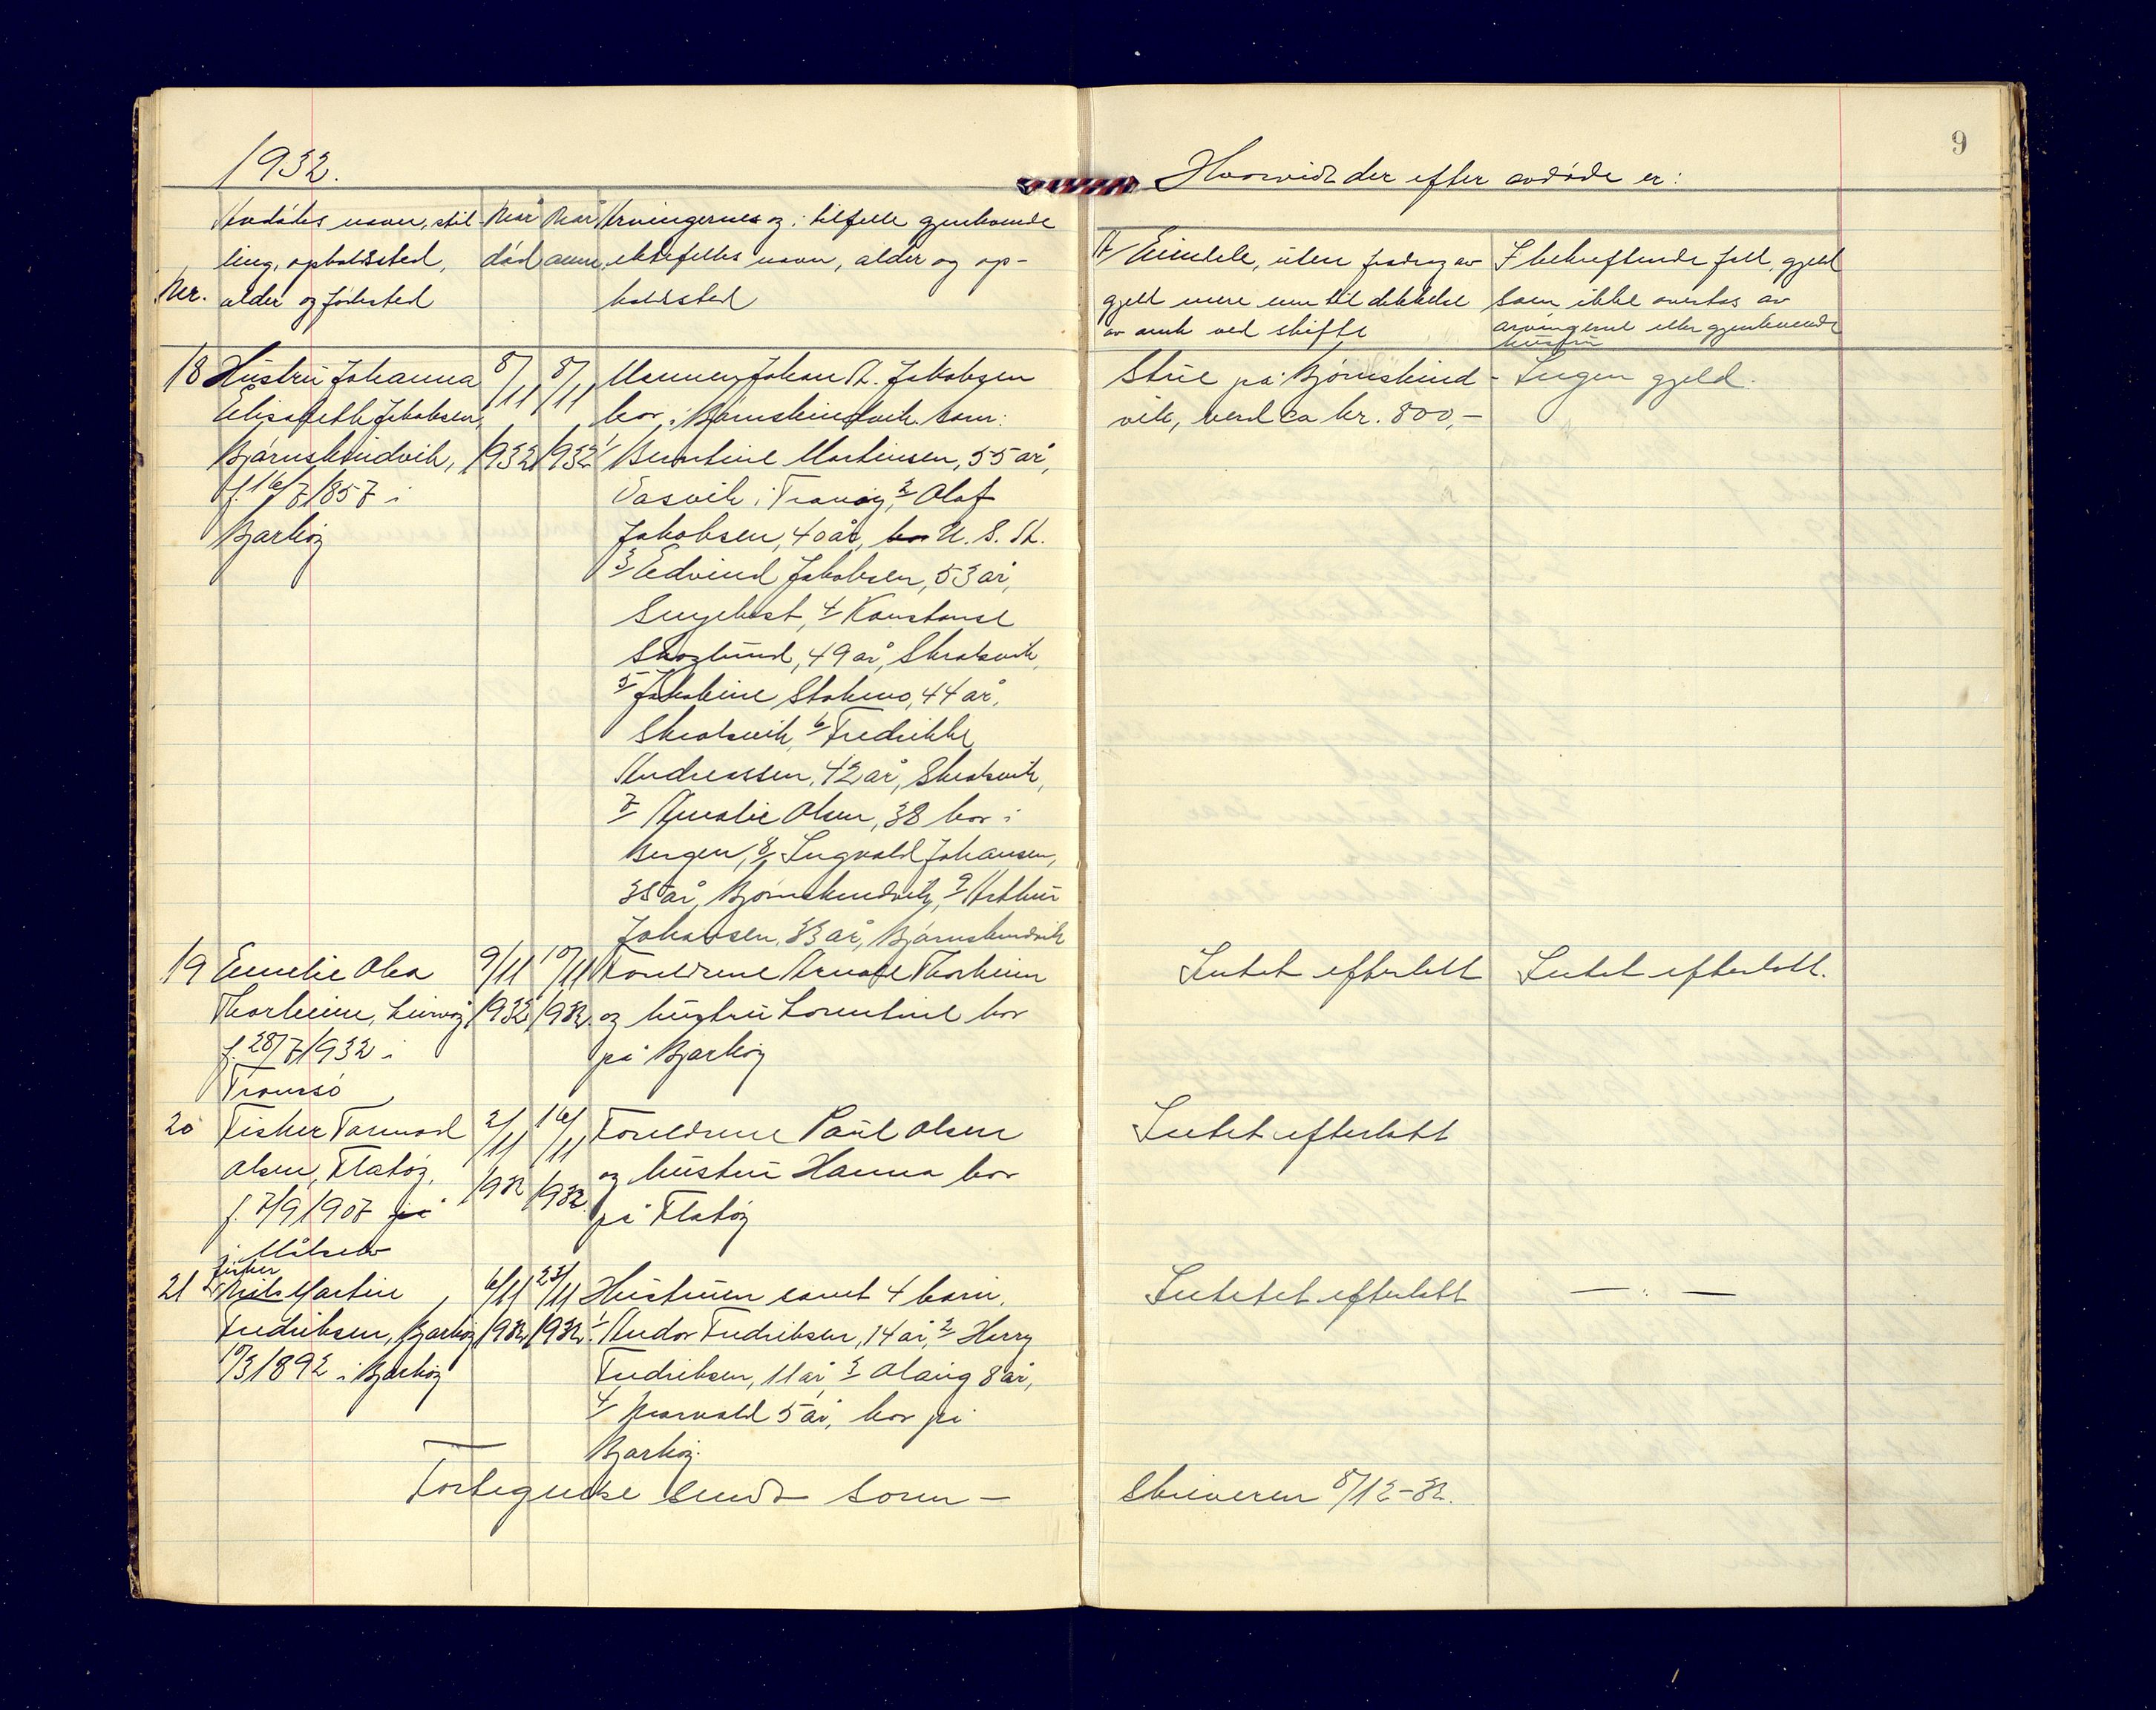 1932.
Nr.
Avdødes navn, stil-
ling, opholdssted,
alder og fødested
Når
død
Når
anm.
Arvingernes og i tilfelle gjenlevende
ektefelles navn, alder og op-
holdssted
18 Hustru Johanna
Elisabeth Jakobsen,
Bjørnskindvik,
f. 16/7 1857 i
Bjarkøy
8/11
1932
8/11
1932
Mannen Johan A. Jakobsen
bor i Bjørnskindvik. som:
1/ Berntine Martinsen, 55 år,
Vasvik i Tranøy, 2/ Olaf
Jakobsen, 40 år, bor U. S. A.
3/ Edvind Jakobsen, 53 år,
4/ Konstanse
Skoglund, 49 år, Skrolsvik,
5/ Jakobine Stakmo, 44 år,
Skrolsvik, 6/ Fredrikke
Andreassen, 42 år, Skrolsvik,
7/ Amalie Olsen, 38 bor i
Bergen, 8/ Ingvald Johansen,
35 år, Bjørnskindvik, 9/ Arthur
Johansen, 33 år, Bjørnskindvik
19 Emelie Olea
Thorheim, Leirvåg
f. 28/7 1932 i
Tromsø
9/11
1932
10/11
1932.
Foreldrene Arnold Thorheim
og hustru Lorentine bor
på Bjarkøy
20 Fisker Tormod
Olsen, Flatøy,
f. 7/9 1907 på
i Målselv
2/11
1932
16/11
1932.
Foreldrene Paul Olsen
og hustru Hanna bor
på Flatøy
21 fisker
Nils Martin
Fredriksen, Bjarkøy
10/3 1892 i Bjarkøy
6/11
1932
23/11
1932.
Hustruen samt 4 barn.
1/ Andor Fredriksen, 14 år, 2/ Harry
Fredriksen, 11 år 3/ Olaug 8 år,
4/ Norvald 5 år, bor på
Bjarkøy.
Fortegnelse sendt Soren-
9
Hvorvidt der efter avdøde er:
A/ Eiendele, uten fradrag av
gjeld mere enn til dekkelse
av omk ved skifte
I bekreftende fall, gjeld
som ikke overtas av
arvingerne eller gjenlevende
hustru
Stue på Bjørnskind-
vik, verd ca kr. 800,-
Ingen gjeld.
Intet efterlatt
Intet efterlatt.
Intet efterlatt
Intetet efterlatt
— " —
skriveren 8/12-32.